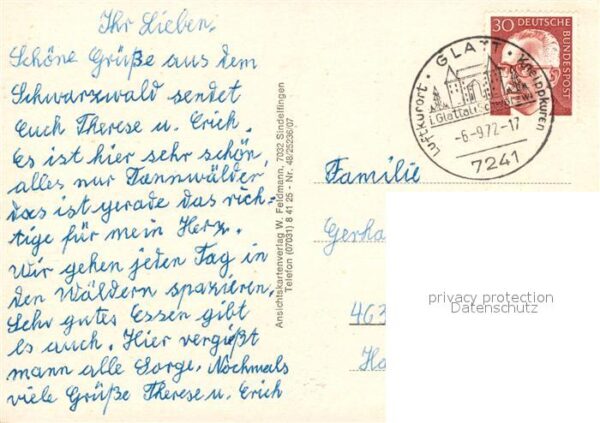 Ihr Lieben.
Schöne Grüße aus dem
Schwarzwald sendet
Euch Therese u. Erich.
Es ist hier sehr schön,
alles nur Tannwälder
das ist gerade das rich-
tige für mein Herz.
Wir gehen jeden Tag in
den Wäldern spazieren.
Sehr gutes Essen gibt
es auch. Hier vergißt
mann alle Sorge. Nochmals
viele Grüße Therese u. Erich
Ansichtskartenverlag W. Feldmann, 7032 Sindelfingen
Telefon (07031) 8 41 25 - Nr. 48/25236/07
30 DEUTSCHE
BUNDESPOST
GLATT
Luftkurort · Kneippkuren
i. Glattal
-6.-9.72.-17
7241
Familie
Gerha
463
privacy protection
Datenschutz